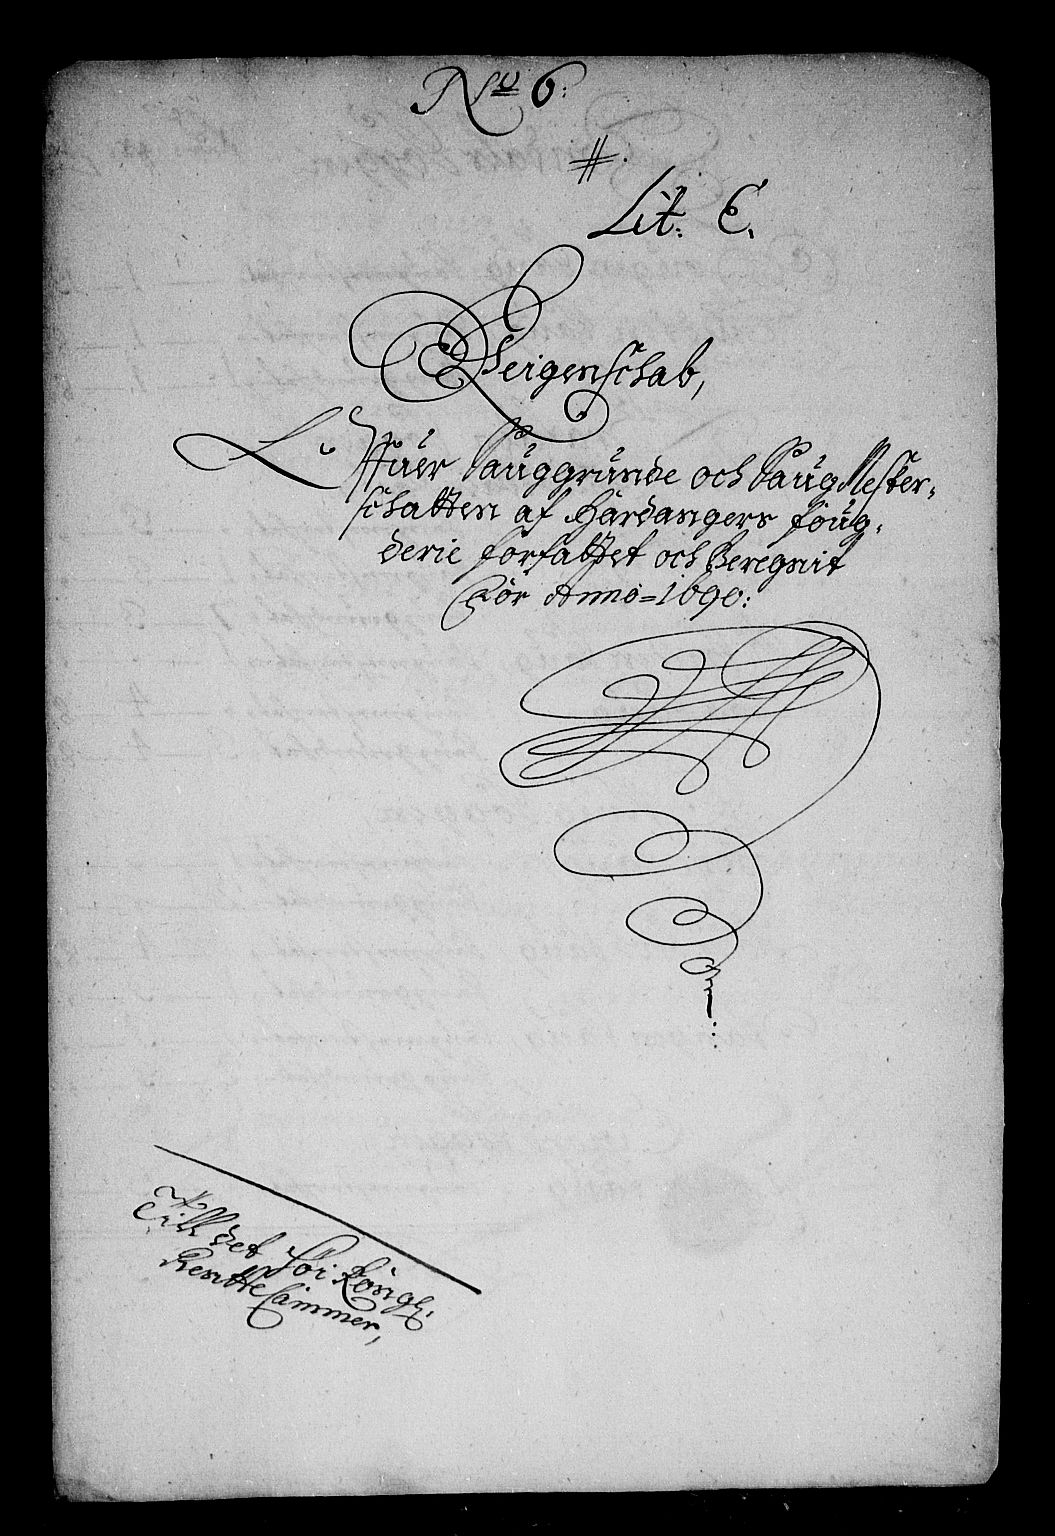 No 6:
#.
Lit. E.
Reigenschab,
Offuer Sauggrunde och Saug Mester-
schatten af Hardangers foug-
derie forfattet och beregnit
För Anno = 1690:
Till det höi Kongl:
Rentte Cammer,